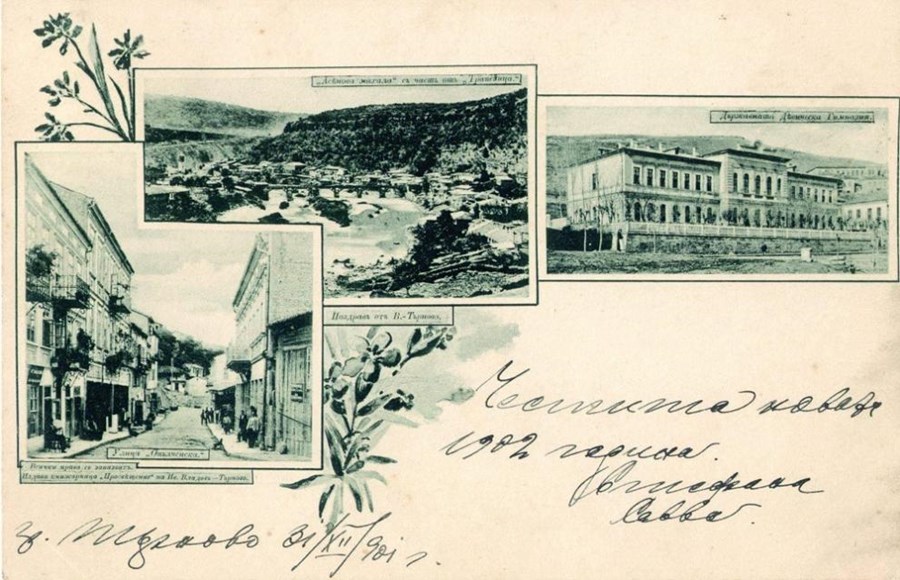 „Асѣнова махала“ съ часть отъ „Трапезица.“
Държавната Дѣвическа Гимназия.
Поздравъ отъ В.-Търново.
Улица
Всички права се запазватъ.
Издава книжарница „Просвѣщение“ на Ив. Владовъ—Търново.
Честита новата
1902 година.
Савва.
гр. Търново 31/XII/901 г.